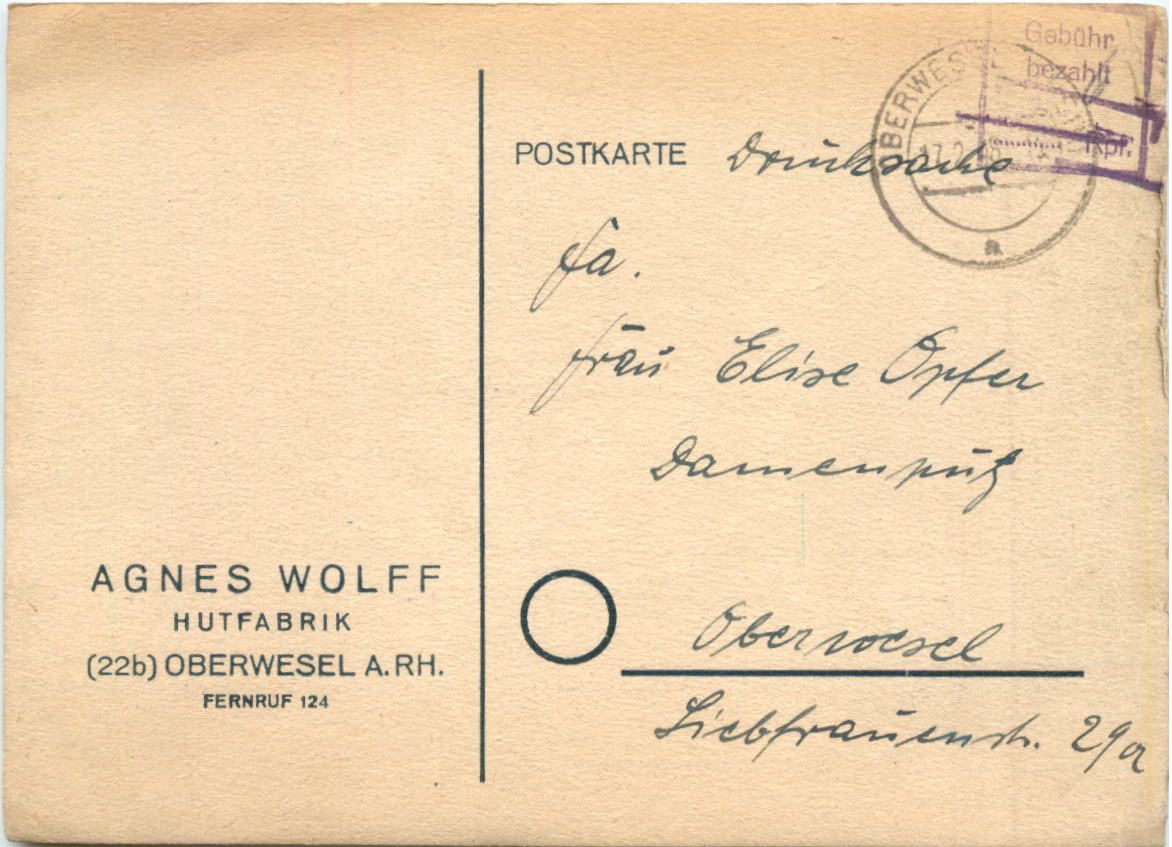 Gebühr
bezahlt
Rpf.
OBERWESEL
17.2.
a
POSTKARTE Drucksache
Fa.
Frau Elise Opfer
Damenputz
Oberwesel
Liebfrauenstr. 29a
AGNES WOLFF
HUTFABRIK
(22b) OBERWESEL A. RH.
FERNRUF 124